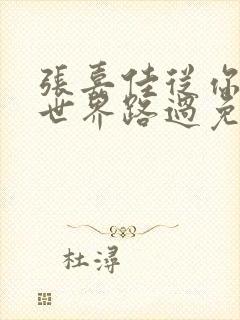 張嘉佳從你
世界路過免
杜潯